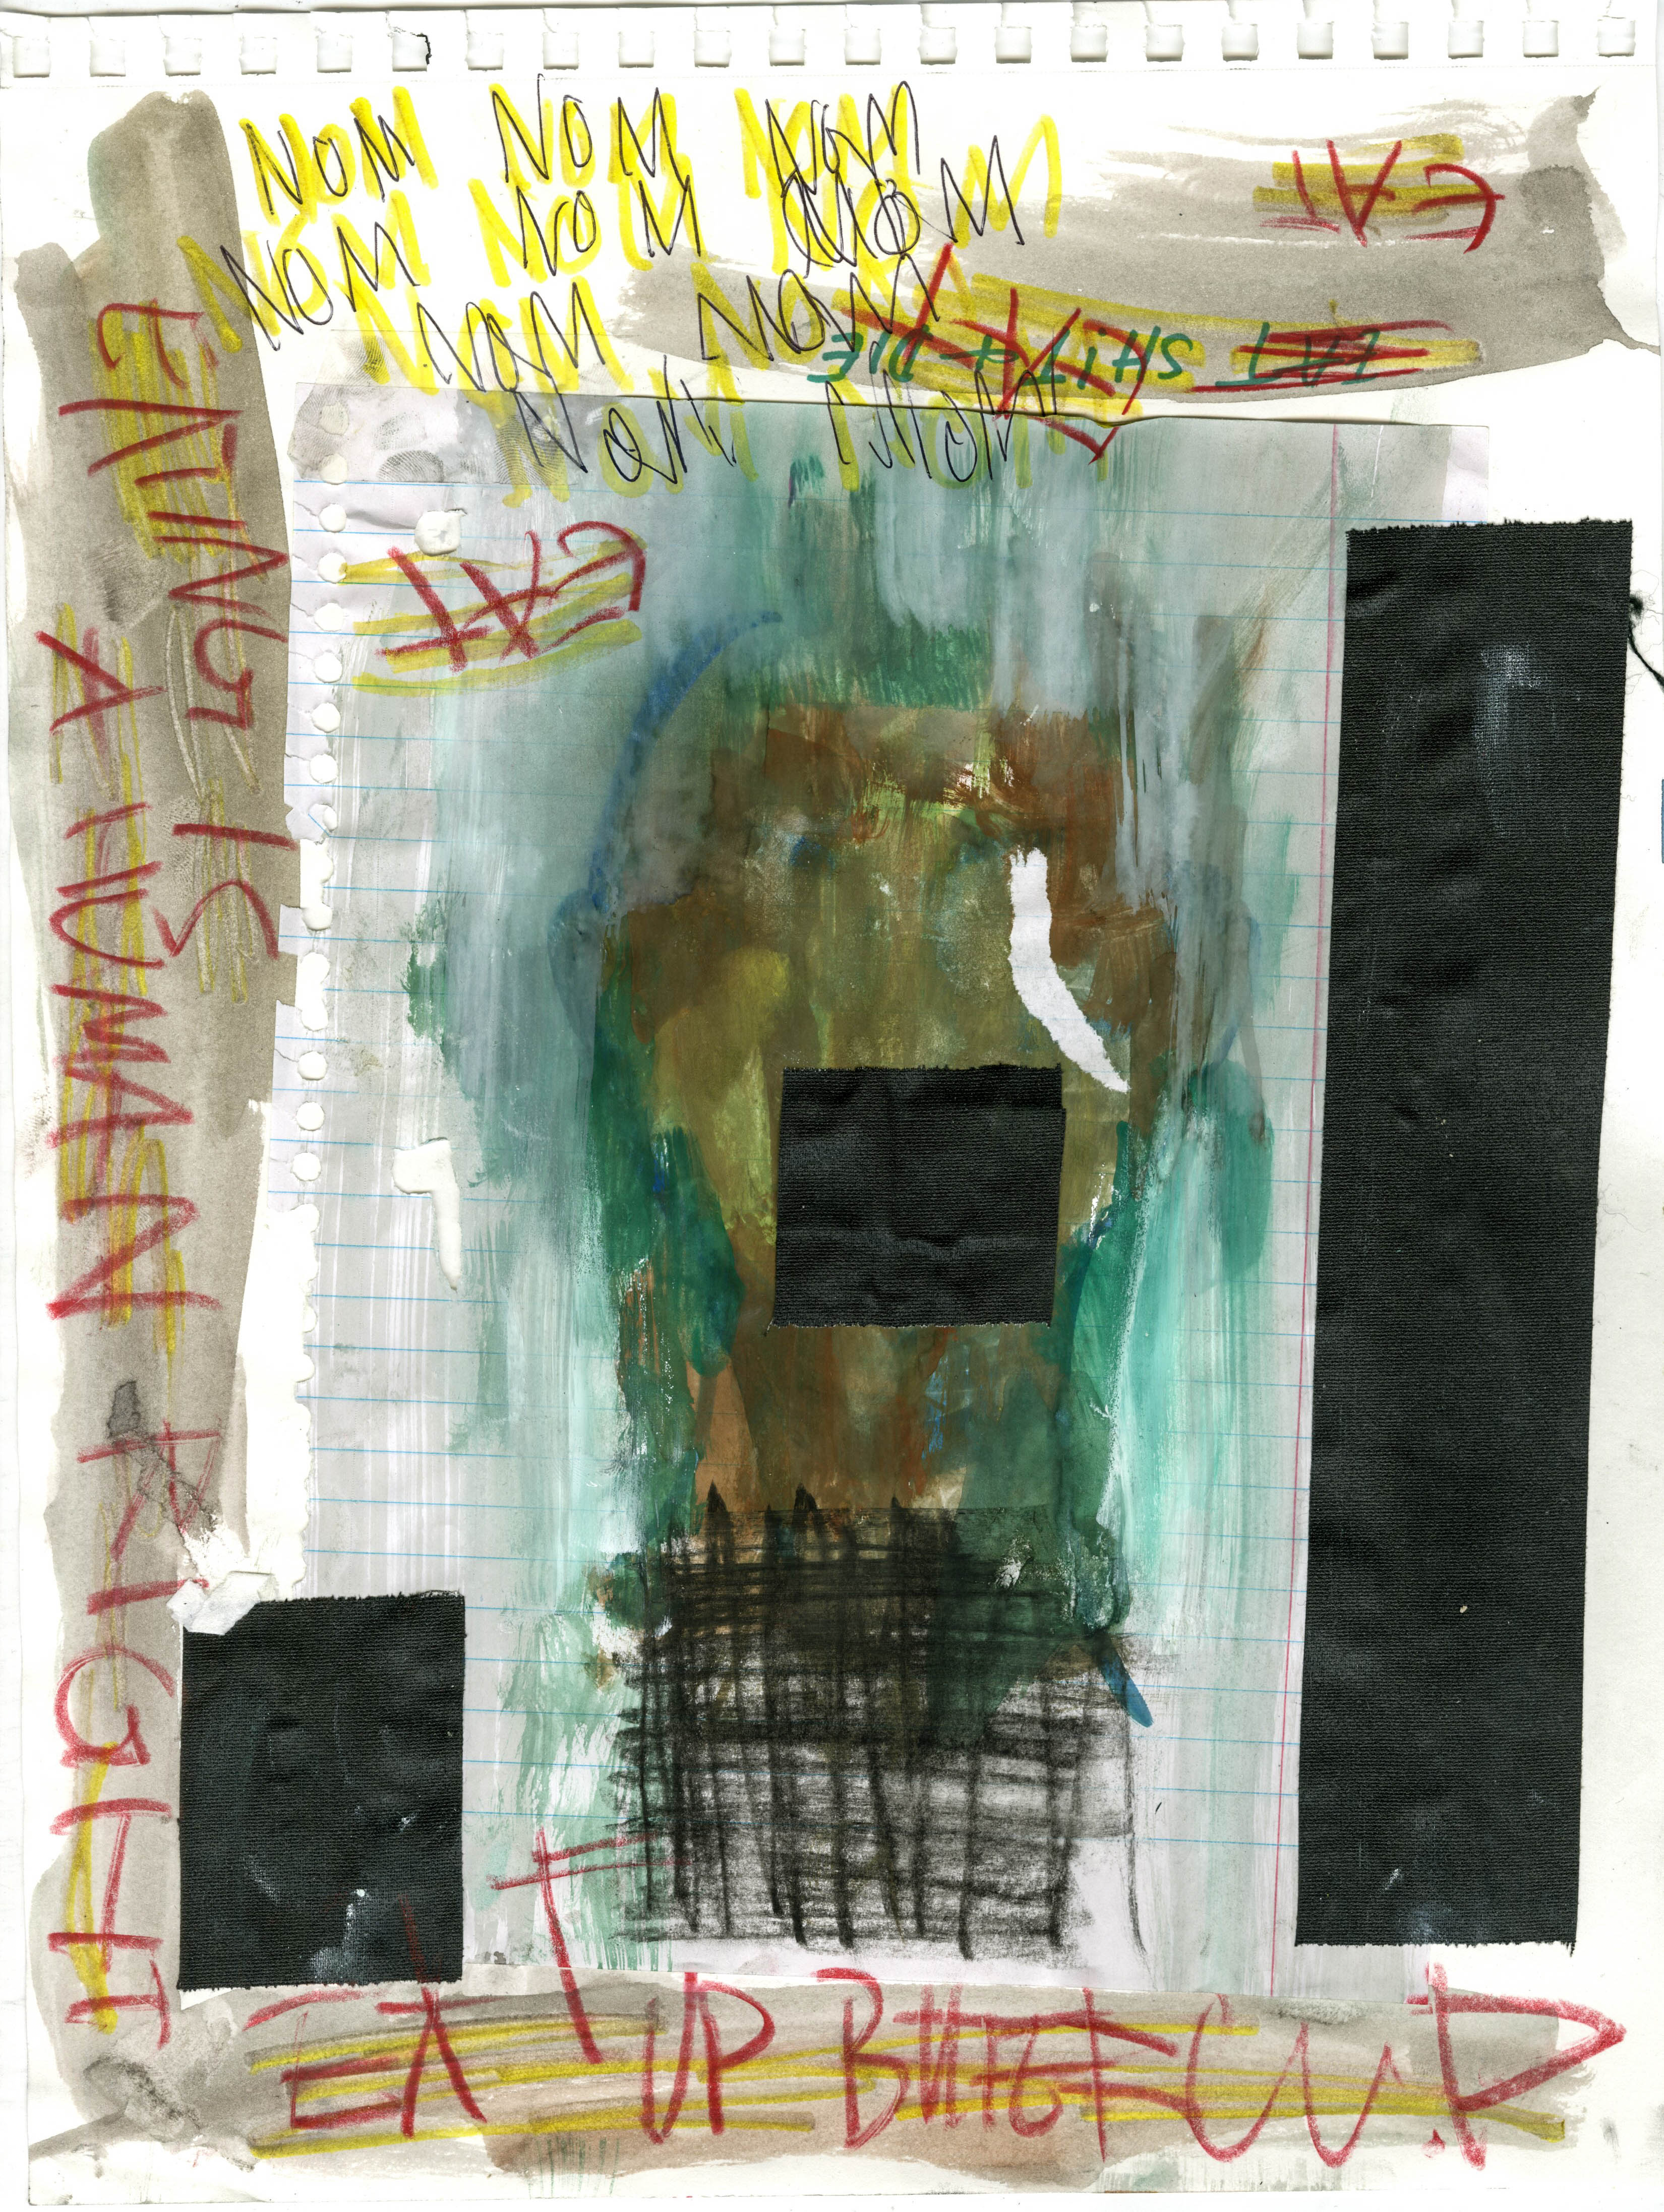 NOM NOM NOM
NOM NOM NOM
NOM NOM
NOM NOM
EAT
EAT SHiT & DIE
EAT
EATING IS
A HUMAN RIGHT
EAT UP BUTTERCUP